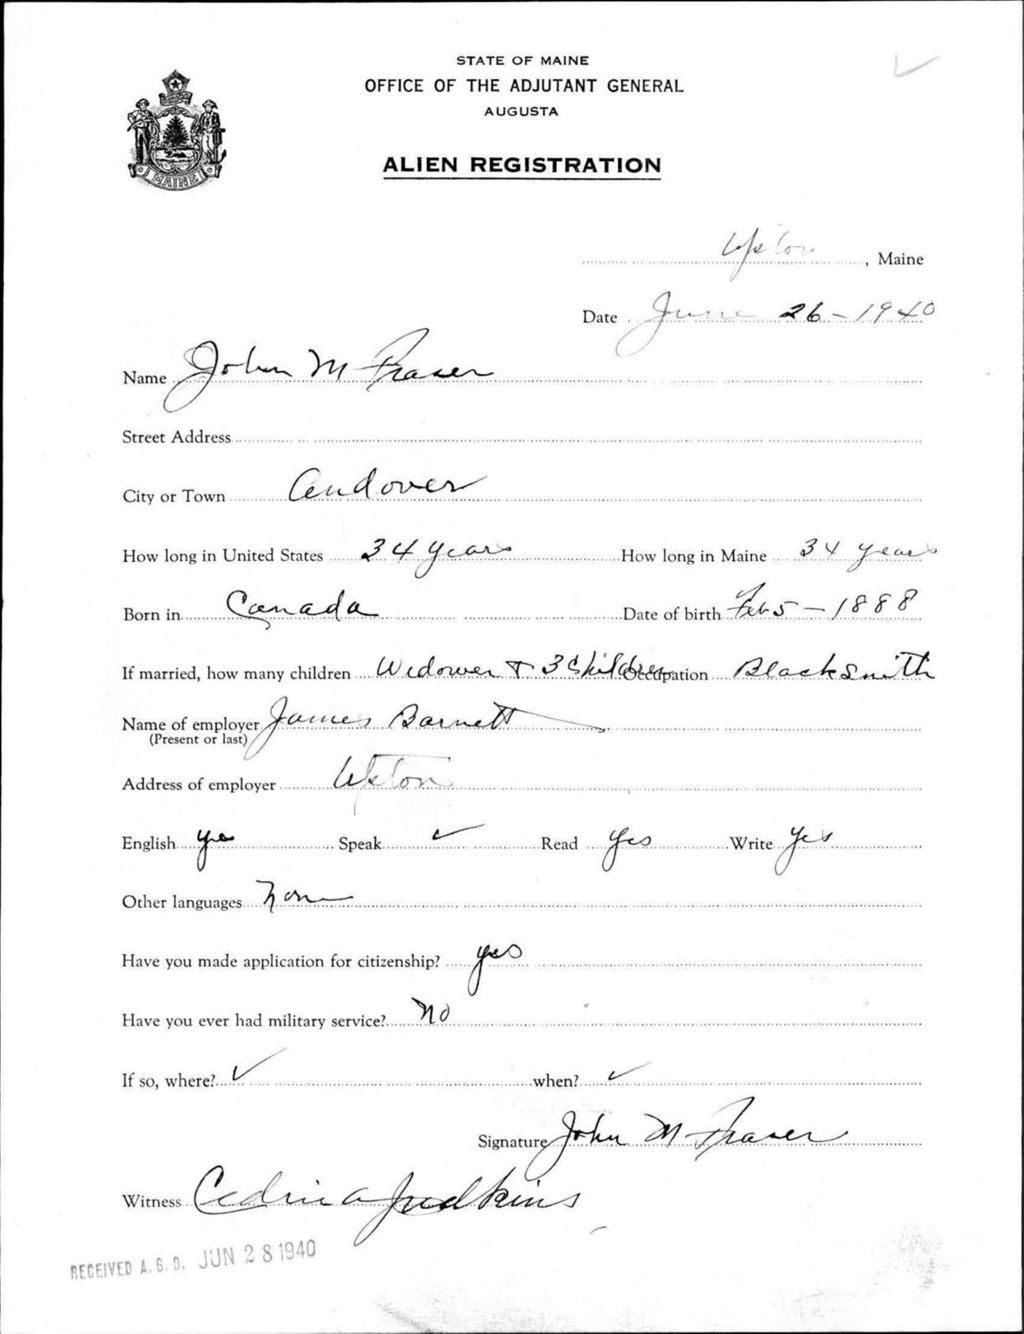 STATE OF MAINE
OFFICE OF THE ADJUTANT GENERAL
AUGUSTA
ALIEN REGISTRATION
MAINE
Upton, Maine
Date June 26-1940
Name John M Fraser
Street Address
City or Town Andover
How long in United States 34 years How long in Maine 34 years
Born in Canada Date of birth Feb 5-1888
If married, how many children Widower + 3 Children Occupation Blacksmith
Name of employer James Barnett
(Present or last)
Address of employer Upton
English yes Speak ✓ Read Yes Write Yes
Other languages None
Have you made application for citizenship? yes
Have you ever had military service? No
If so, where? ✓ when? ✓
Signature John M Fraser
Witness A Judkins
RECEIVED A. G. O. JUN 28 1940